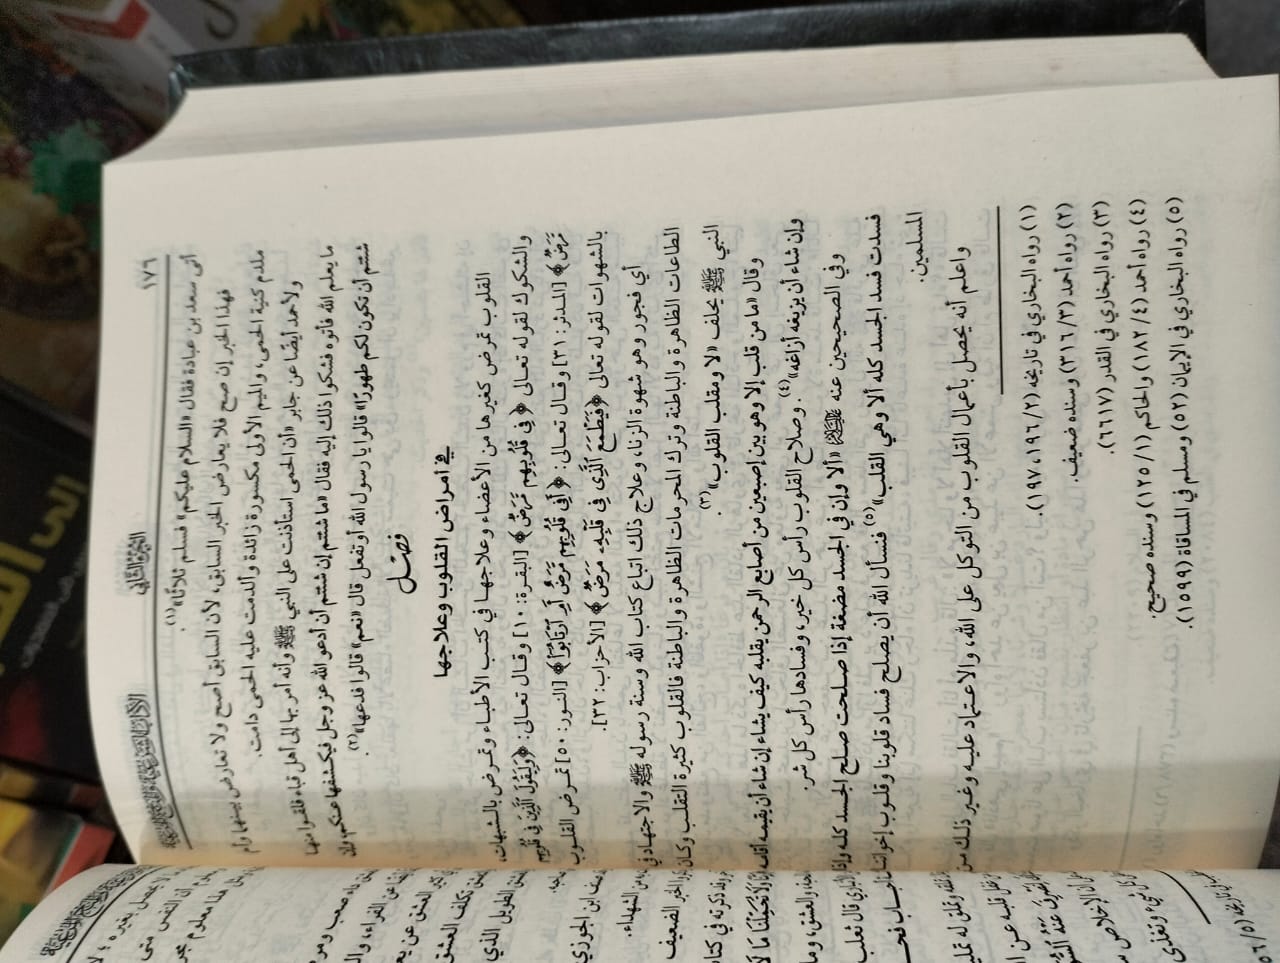 ١٧٦
الجزء الثاني
الآداب الشرعية والمنح المرعية
أتى سعد بن عبادة فقال «السلام عليكم» فسلم ثلاثًا»(١).
فهذا الخبر إن صح فلا يعارض الخبر السابق، لأن السابق أصح ولا تعارض بينهما وأم
ملدم كنية الحمى، والميم الأولى مكسورة زائدة وألدمت عليه الحمى دامت.
ولأحمد أيضًا عن جابر «أن الحمى استأذنت على النبي ﷺ وأنه أمر بها إلى أهل قباء فلقوا منها
ما يعلم الله فأتوه فشكوا ذلك إليه فقال «ما شئتم إن شئتم أن أدعو الله عز وجل فيكشفها عنكم وإن
شئتم أن تكون لكم طهورًا» قالوا يا رسول الله أوتفعل قال «نعم» قالوا فدعها»(٢).
فصل
في أمراض القلوب وعلاجها
القلوب تمرض كغيرها من الأعضاء وعلاجها في كتب الأطباء وتمرض بالشبهات،
والشكوك لقوله تعالى ﴿فِي قُلُوبِهِم مَّرَضٌ﴾ [البقرة: ١٠] وقال تعالى: ﴿وَلِيَقُولَ الَّذِينَ فِي قُلُوبِهِم
مَّرَضٌ﴾ [المدثر: ٣١] وقال تعالى: ﴿أَفِي قُلُوبِهِم مَّرَضٌ أَمِ ارْتَابُوا﴾ [النور: ٥٠] تمرض القلوب
بالشهوات لقوله تعالى ﴿فَيَطْمَعَ الَّذِي فِي قَلْبِهِ مَرَضٌ﴾ [الأحزاب: ٣٢].
أي فجور وهو شهوة الزنا، وعلاج ذلك اتباع كتاب الله وسنة رسوله ﷺ والاجتهاد في
الطاعات الظاهرة والباطنة وترك المحرمات الظاهرة والباطنة فالقلوب كثيرة التقلب وكان
النبي ﷺ يحلف «لا ومقلب القلوب»(٣).
وقال «ما من قلب إلا وهو بين إصبعين من أصابع الرحمن يقلبه كيف يشاء إن شاء أن يقيمه أقامه
وإن شاء أن يزيغه أزاغه»(٤). وصلاح القلوب رأس كل خير، وفسادها رأس كل شر.
وفي الصحيحين عنه ﷺ «ألا وإن في الجسد مضغة إذا صلحت صلح الجسد كله وإذا
فسدت فسد الجسد كله ألا وهي القلب»(٥) فنسأل الله أن يصلح فساد قلوبنا وقلوب إخواننا
المسلمين.
واعلم أنه يحصل بأعمال القلوب من التوكل على الله، والاعتماد عليه وغير ذلك من
(١) رواه البخاري في تاريخه (١٩٧،١٩٦/٢).
(٢) رواه أحمد (٣١٦/٣) وسنده ضعيف.
(٣) رواه البخاري في القدر (٦٦١٧).
(٤) رواه أحمد (١٨٢/٤) والحاكم (١٢٥/١) وسنده صحيح.
(٥) رواه البخاري في الإيمان (٥٢) ومسلم في المساقاة (١٥٩٩).